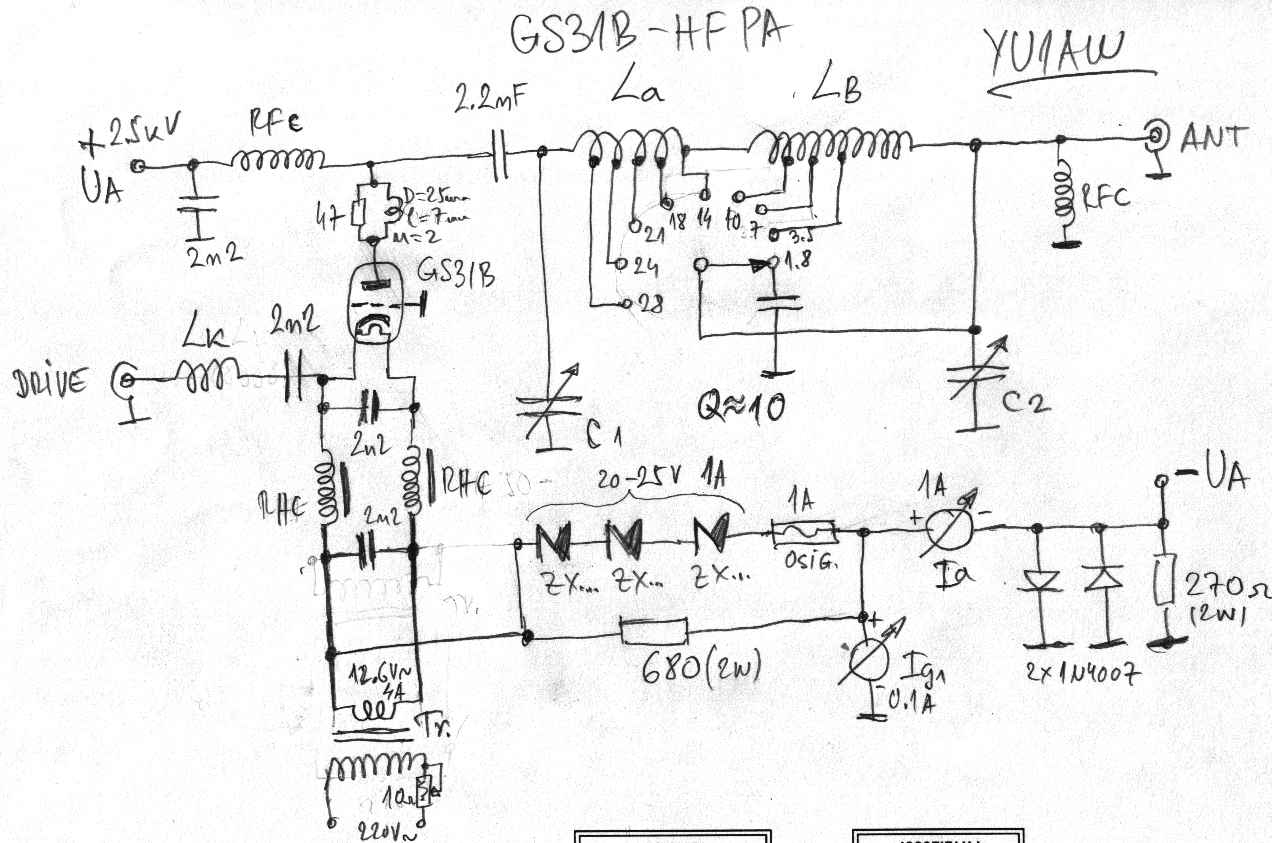 GS31B-HF PA
YU1AW
+2.5kV
UA
RFC
2.2nF
La
LB
ANT
RFC
2n2
47
D=25mm
l=7mm
n=2
GS31B
28
24
21
18
14
10
7
3.5
1.8
Q≈10
DRIVE
LK
2n2
2n2
C1
C2
RFC
RFC
2n2
20-25V 1A
ZX...
ZX...
ZX...
1A
OSIG.
1A
+
-
Ia
-UA
270Ω
(2W)
2x1N4007
680(2W)
+
Ig1
-
0.1A
12.6V~
4A
Tr.
10Ω
220V~